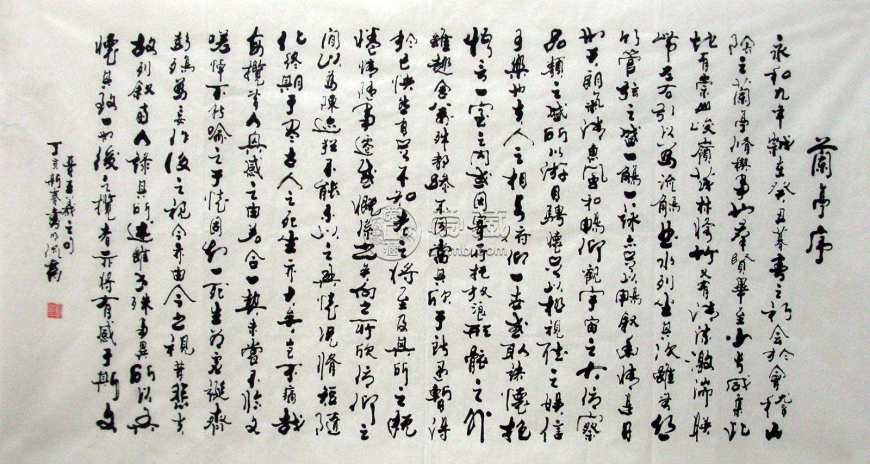 蘭亭序
永和九年歲在癸丑暮春之初會於會稽山
陰之蘭亭脩禊事也羣賢畢至少長咸集此
地有崇山峻嶺茂林脩竹又有清流激湍映
帶左右引以為流觴曲水列坐其次雖無絲
竹管弦之盛一觴一詠亦足以暢敘幽情是日
也天朗氣清惠風和暢仰觀宇宙之大俯察
品類之盛所以游目騁懷足以極視聽之娛信
可樂也夫人之相與俯仰一世或取諸懷抱
悟言一室之內或因寄所託放浪形骸之外
雖趣舍萬殊靜躁不同當其欣於所遇暫得
於己快然自足不知老之將至及其所之既
惓情隨事遷感慨係之矣向之所欣俯仰之
間以為陳迹猶不能不以之興懷況脩短隨
化終期于盡古人云死生亦大矣豈不痛哉
每攬昔人興感之由若合一契未嘗不臨文
嗟悼不能喻之于懷固知一死生為虛誕齊
彭殤為妄作後之視今亦由今之視昔悲夫
故列敘時人錄其所述雖世殊事異所以興
懷其致一也後之攬者亦將有感于斯文
丁亥新春